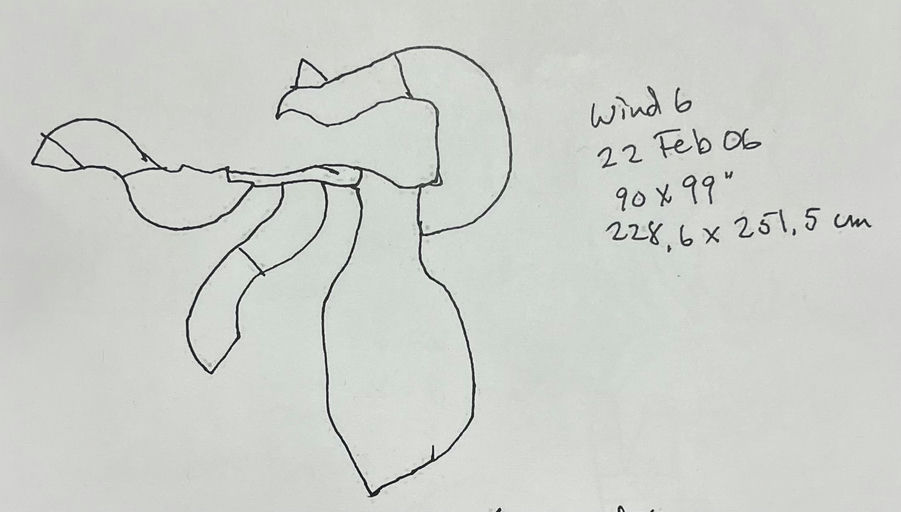 Wind 6
22 Feb 06
90 x 99"
228,6 x 251,5 cm